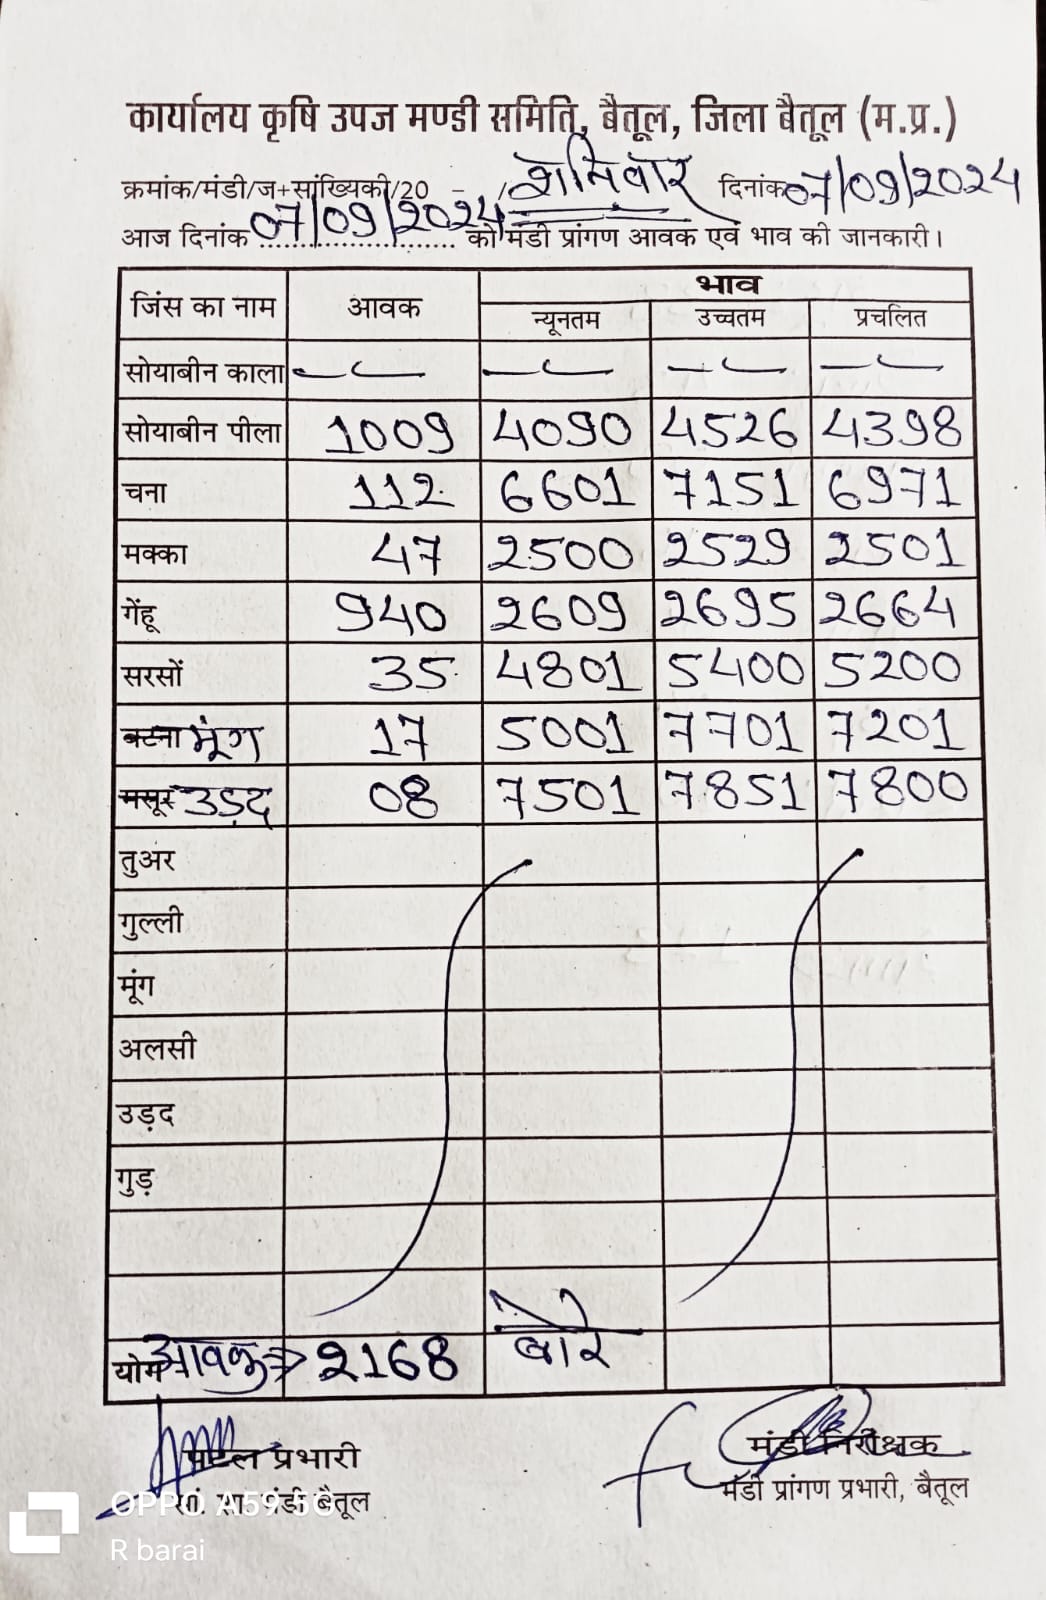 कार्यालय कृषि उपज मण्डी समिति, बैतूल, जिला बैतूल (म.प्र.)
क्रमांक/मंडी/ज+सांख्यिकी/20 - / शनिवार दिनांक 07/09/2024
आज दिनांक 07/09/2024 को मंडी प्रांगण आवक एवं भाव की जानकारी।
जिंस का नाम आवक भाव
न्यूनतम उच्चतम प्रचलित
सोयाबीन काला — — — —
सोयाबीन पीला 1009 4090 4526 4398
चना 112 6601 7151 6971
मक्का 47 2500 2529 2501
गेंहू 940 2609 2695 2664
सरसों 35 4801 5400 5200
बटना मूंग 17 5001 7701 7201
मसूर उड़द 08 7501 7851 7800
तुअर
गुल्ली
मूंग
अलसी
उड़द
गुड़
योग आवक => 2168 बोरे
पटल प्रभारी मंडी निरीक्षक
सां. शा. मंडी बैतूल मंडी प्रांगण प्रभारी, बैतूल
OPPO A59 5G
R barai